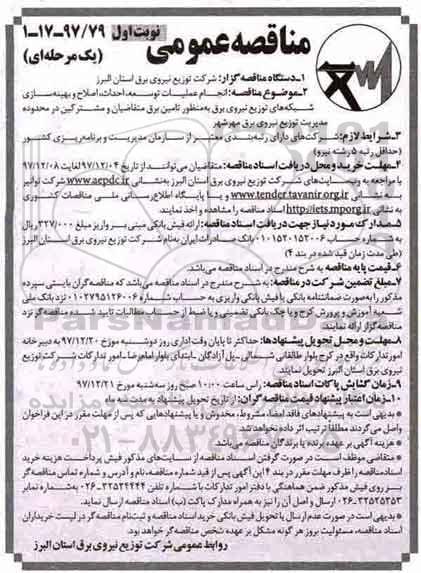 مناقصه عمومی
نوبت اول
۱-۱۷-۹۷/۷۹
(یک مرحله‌ای)
۱-دستگاه مناقصه‌گزار: شرکت توزیع نیروی برق استان البرز
۲-موضوع مناقصه: انجام عملیات توسعه، احداث، اصلاح و بهینه‌سازی
شبکه‌های توزیع نیروی برق به‌منظور تامین برق متقاضیان و مشترکین در محدوده
مدیریت توزیع نیروی برق مهرشهر
۳-شرایط لازم: شرکت‌های دارای رتبه‌بندی معتبر از سازمان مدیریت و برنامه‌ریزی کشور
(حداقل رتبه ۵ رشته نیرو)
۴-مهلت خرید و محل دریافت اسناد مناقصه: متقاضیان می‌توانند از تاریخ ۹۷/۱۲/۰۴ لغایت ۹۷/۱۲/۰۸
با مراجعه به وبسایت‌های شرکت توزیع نیروی برق استان البرز به‌نشانی www.aepdc.ir شرکت توانیر
به نشانی www.tender.tavanir.org.ir و یا پایگاه اطلاع‌رسانی ملی مناقصات کشوری
به نشانی http://iets.mporg.ir اسناد مناقصه را مشاهده و اخذ نمایند.
۵-مدارک مورد نیاز جهت دریافت اسناد مناقصه: ارائه فیش بانکی مبنی بر واریز مبلغ ۳۲۷/۰۰۰ ریال
به شماره حساب ۰۱۰۱۵۲۰۱۵۲۰۰۶ بانک صادرات ایران به‌نام شرکت توزیع نیروی برق استان البرز
(طی مدت زمان قید شده در بند ۴)
۶-قیمت پایه مناقصه به شرح مندرج در اسناد مناقصه می‌باشد.
۷-مبلغ تضمین شرکت در مناقصه: به شرح مندرج در اسناد مناقصه می‌باشد که مناقصه‌گران بایستی سپرده
مذکور را به‌صورت ضمانتنامه بانکی یا فیش بانکی واریزی به حساب شماره ۰۱۰۲۷۹۵۱۲۶۰۰۶ نزد بانک ملی
شعبه آموزش و پرورش کرج و یا چک بانکی تضمینی و یا ضبط از حساب مطالبات تایید شده مناقصه‌گر نزد
مناقصه‌گزار ارائه نمایند.
۸-مهلت و محل تحویل پیشنهادها: حداکثر تا پایان وقت اداری روز دوشنبه مورخ ۹۷/۱۲/۲۰ به دبیرخانه
امور تدارکات واقع در کرج بلوار طالقانی شمالی-پل آزادگان-ابتدای بلوار امام رضا-امور تدارکات شرکت توزیع
نیروی برق استان البرز تحویل نمایند.
۹-زمان گشایش پاکات اسناد مناقصه: راس ساعت ۱۰:۰۰ صبح روز سه‌شنبه مورخ ۹۷/۱۲/۲۱
۱۰-زمان اعتبار پیشنهاد قیمت مناقصه گران: از تاریخ تحویل پیشنهاد به مدت سه ماه
* بدیهی است به پیشنهادهای فاقد امضاء، مشروط، مخدوش و یا پیشنهادهایی که پس از مهلت مقرر در این فراخوان
واصل می‌گردند مطلقا ترتیب اثر داده نخواهد شد.
* هزینه آگهی بر عهده برنده یا برندگان مناقصه می‌باشد.
* متقاضی موظف است در صورت گرفتن اسناد مناقصه از سایت‌های مذکور فیش پرداخت هزینه خرید
اسناد مناقصه را ظرف مهلت مقرر در بند ۴ این آگهی پس از قید شماره مناقصه، نام و آدرس و شماره تماس مناقصه‌گر
بر روی فیش مذکور ضمن هماهنگی با دفتر امور تدارکات با شماره تلفن ۳۲۵۲۴۴۴۴-۰۲۶ به‌شماره نمابر
۳۲۵۲۵۳۵۳-۰۲۶ ارسال و اصل آن را نیز به همراه مدارک پاکت (ب) اسناد مناقصه ارسال نماید.
* بدیهی است در صورت عدم ارسال یا تحویل فیش بانکی خرید اسناد مناقصه و ثبت‌نام مناقصه‌گر در لیست خریداران
اسناد مناقصه، مسئولیت بروز هر گونه مشکل بر عهده شخص مناقصه‌گر خواهد بود.
روابط عمومی شرکت توزیع نیروی برق استان البرز